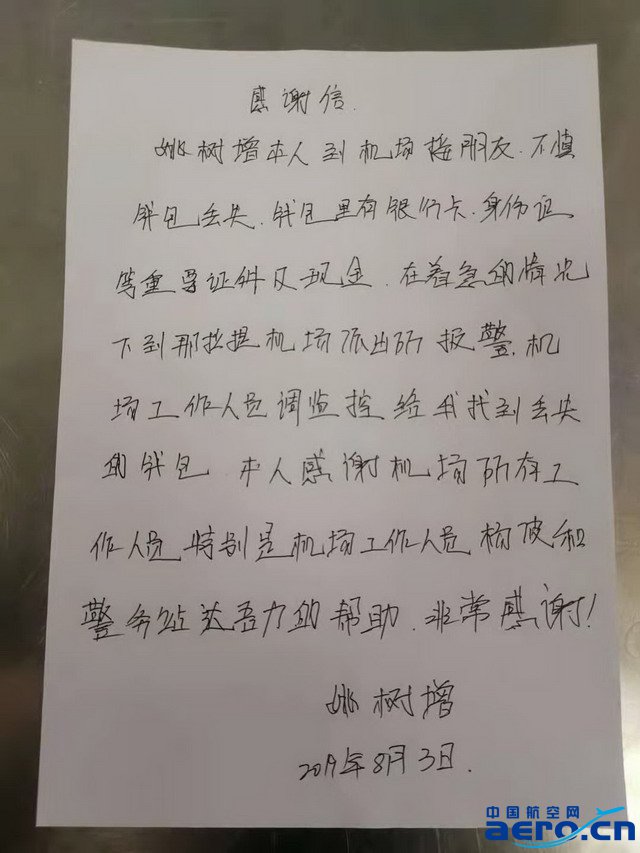 感谢信.
姚树增本人到机场接朋友.不慎
钱包丢失.钱包里有银行卡.身份证
等重要证件及现金.在着急的情况
下到那拉提机场派出所报警.机
场工作人员调监控给我找到丢失
的钱包 本人感谢机场所有工
作人员.特别是机场工作人员杨波和
警务站达吾力的帮助.非常感谢!
姚树增
2019年8月3日.
中国航空网
aero.cn